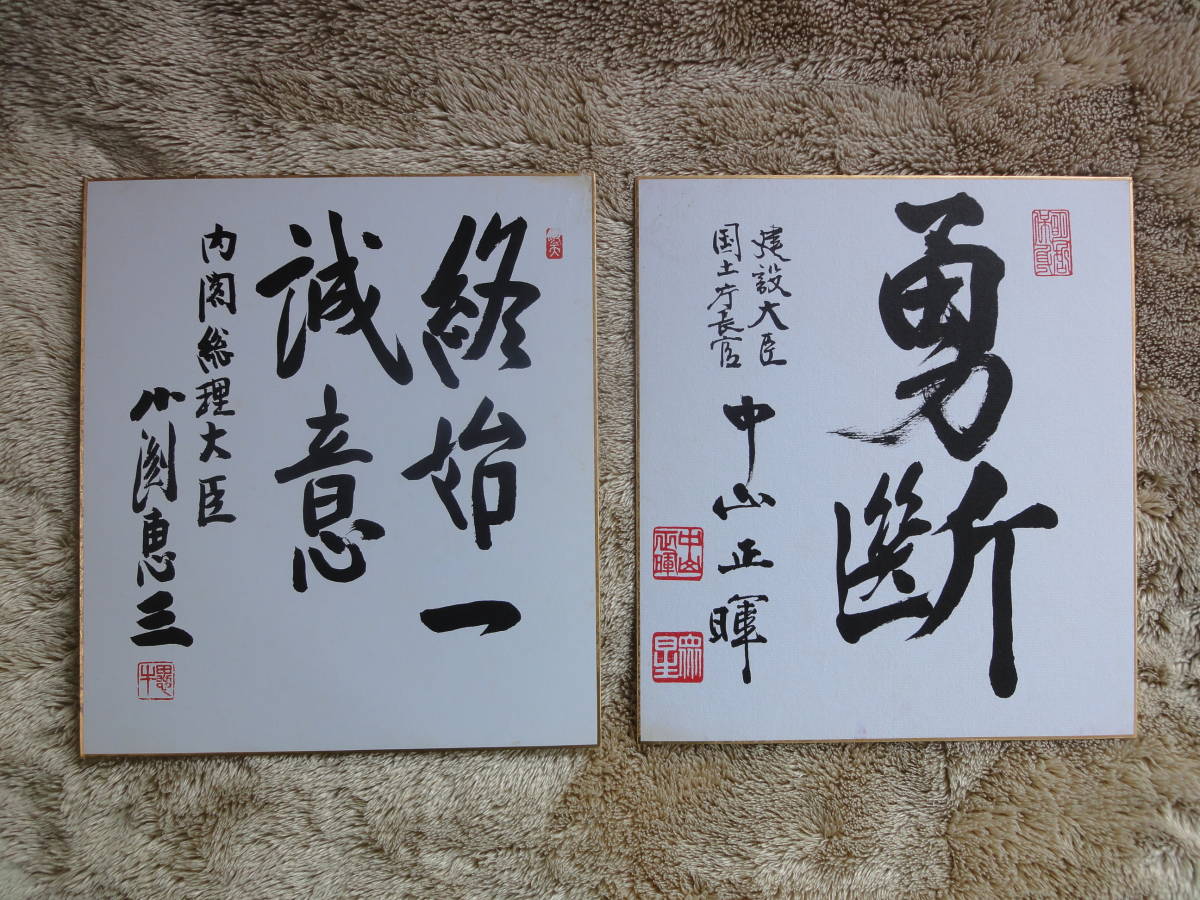 終始一
誠意
内閣総理大臣
小渕恵三
勇斷
建設大臣
国土庁長官
中山正暉
中山正暉